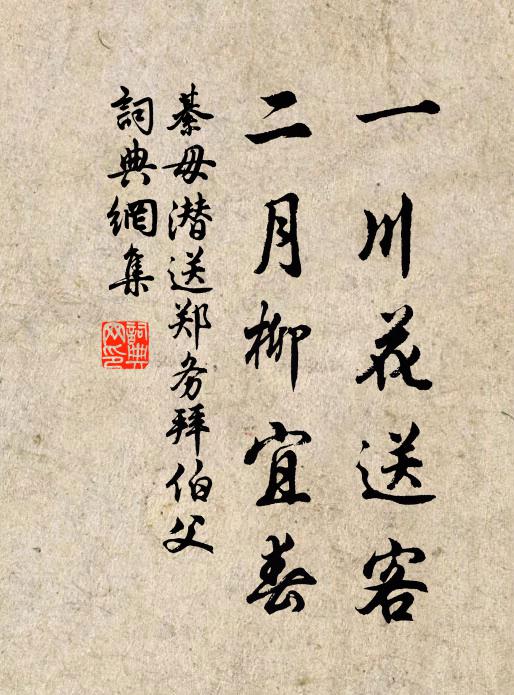 一川花送客
二月柳宜春
綦毋潜送郑务拜伯父
詞典網集
詞典網印